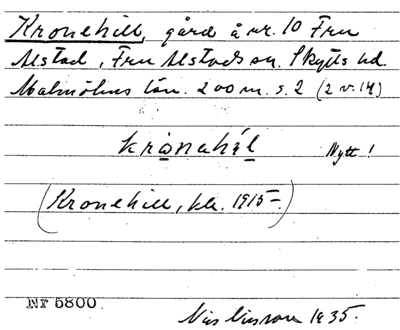 Kronehill, gård å nr. 10 Fru
Alstad, Fru Alstads sn. Skytts hd.
Malmöhus län. 200 m. s. 2 (2 v. 14)
kronahil Nytt!
(Kronehill, kk. 1915-)
Nr 5800
Nils Nilsson 1935.